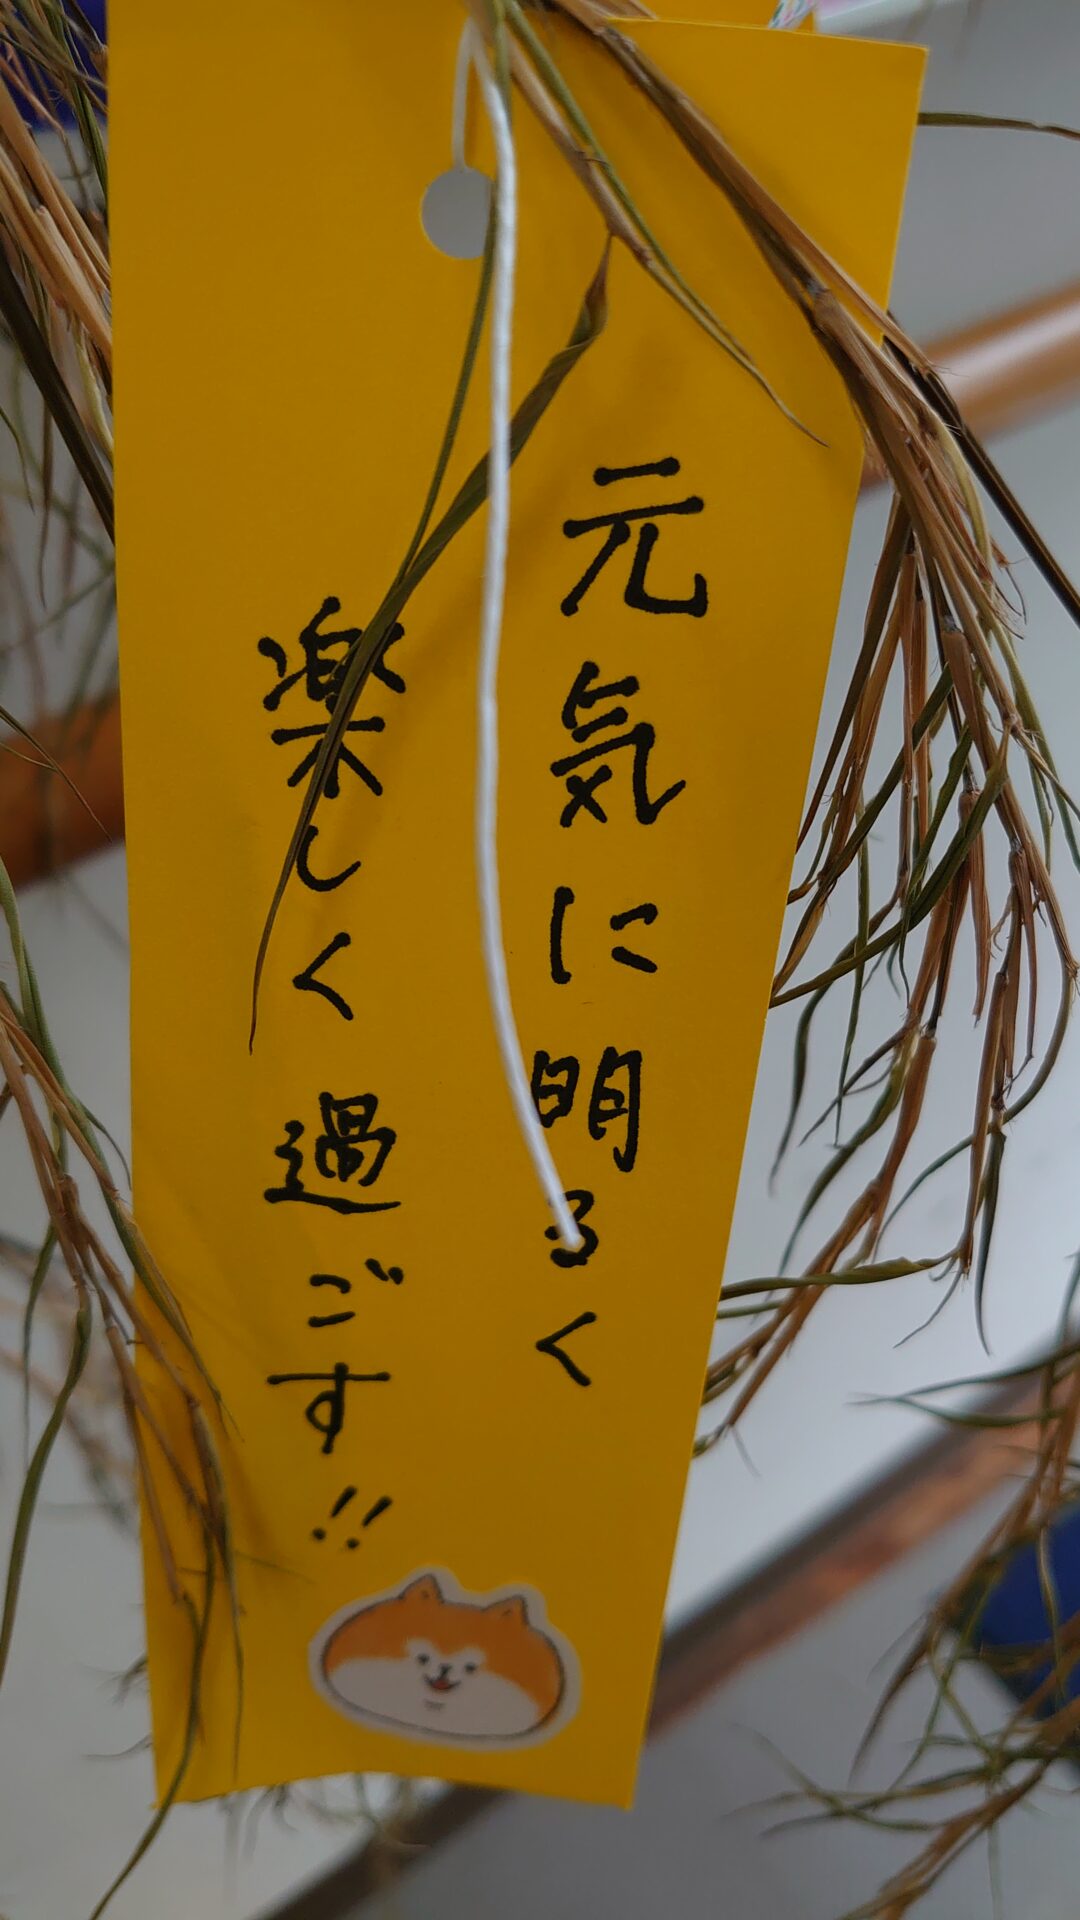 元気に明るく
楽しく過ごす!!